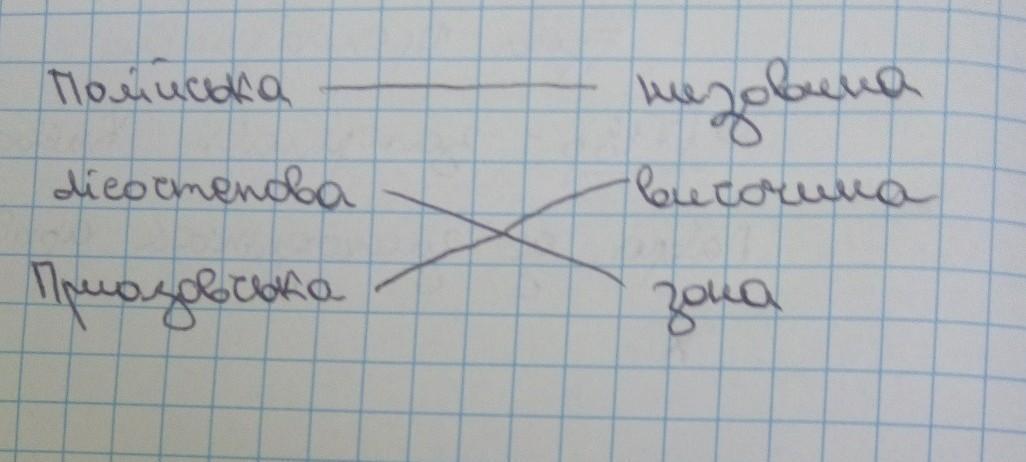 Поліська низовина
лісостепова височина
Приазовська зона